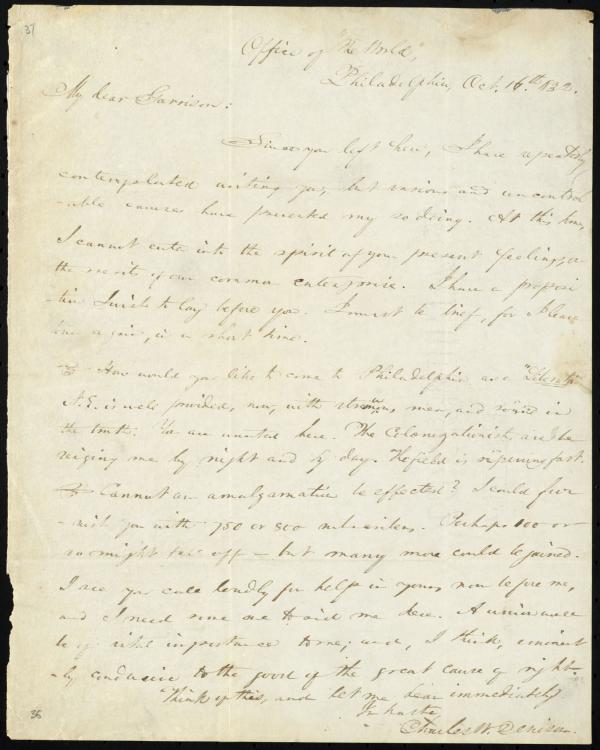 37
Office of "The World",
Philadelphia, Oct. 16th. 1832.
My dear Garrison:
Since you left here, I have repeatedly
contemplated writing you, but various and uncontrol-
-able causes have prevented my so doing. At this time,
I cannot enter into the spirit of your present feelings, or
the merits of our common enterprise. I have a proposi-
-tion I wish to lay before you. I must be brief, for I leave
town again, in a short time.
How would you like to come to Philadelphia and "Liberator"
N.E. is well provided, now, with strong men, and in
the truth. You are wanted here. The Colonizationists are be-
sieging me by night and by day. The field is ripening fast.
Cannot an amalgamation be effected? I could fur-
-nish you with 750 or 800 subscribers. Perhaps 100 or
so might fall off – but many more could be joined.
I see you call loudly for help in yours now before me,
and I need some one to aid me here. A union would
be of vital importance to me; and, I think, eminent-
-ly conducive to the good of the great cause of right.
Think of this, and let me hear immediately
In haste
Charles W. Denison.
36